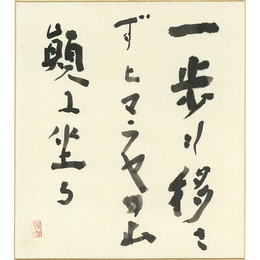 一歩も移さ
ずヒマラヤの山
顛に坐る